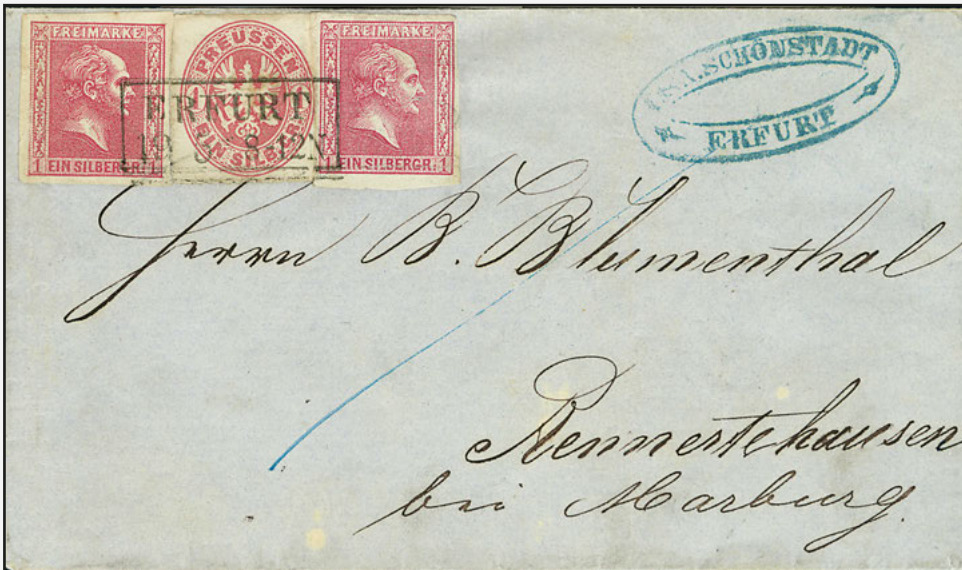 FREIMARKE
1 EIN SILBERGR. 1
PREUSSEN
EIN SILBERGR.
FREIMARKE
1 EIN SILBERGR. 1
ERFURT
8-12N
SCHÖNSTADT
ERFURT
Herrn B. Blumenthal
Rennertehausen
bei Marburg.